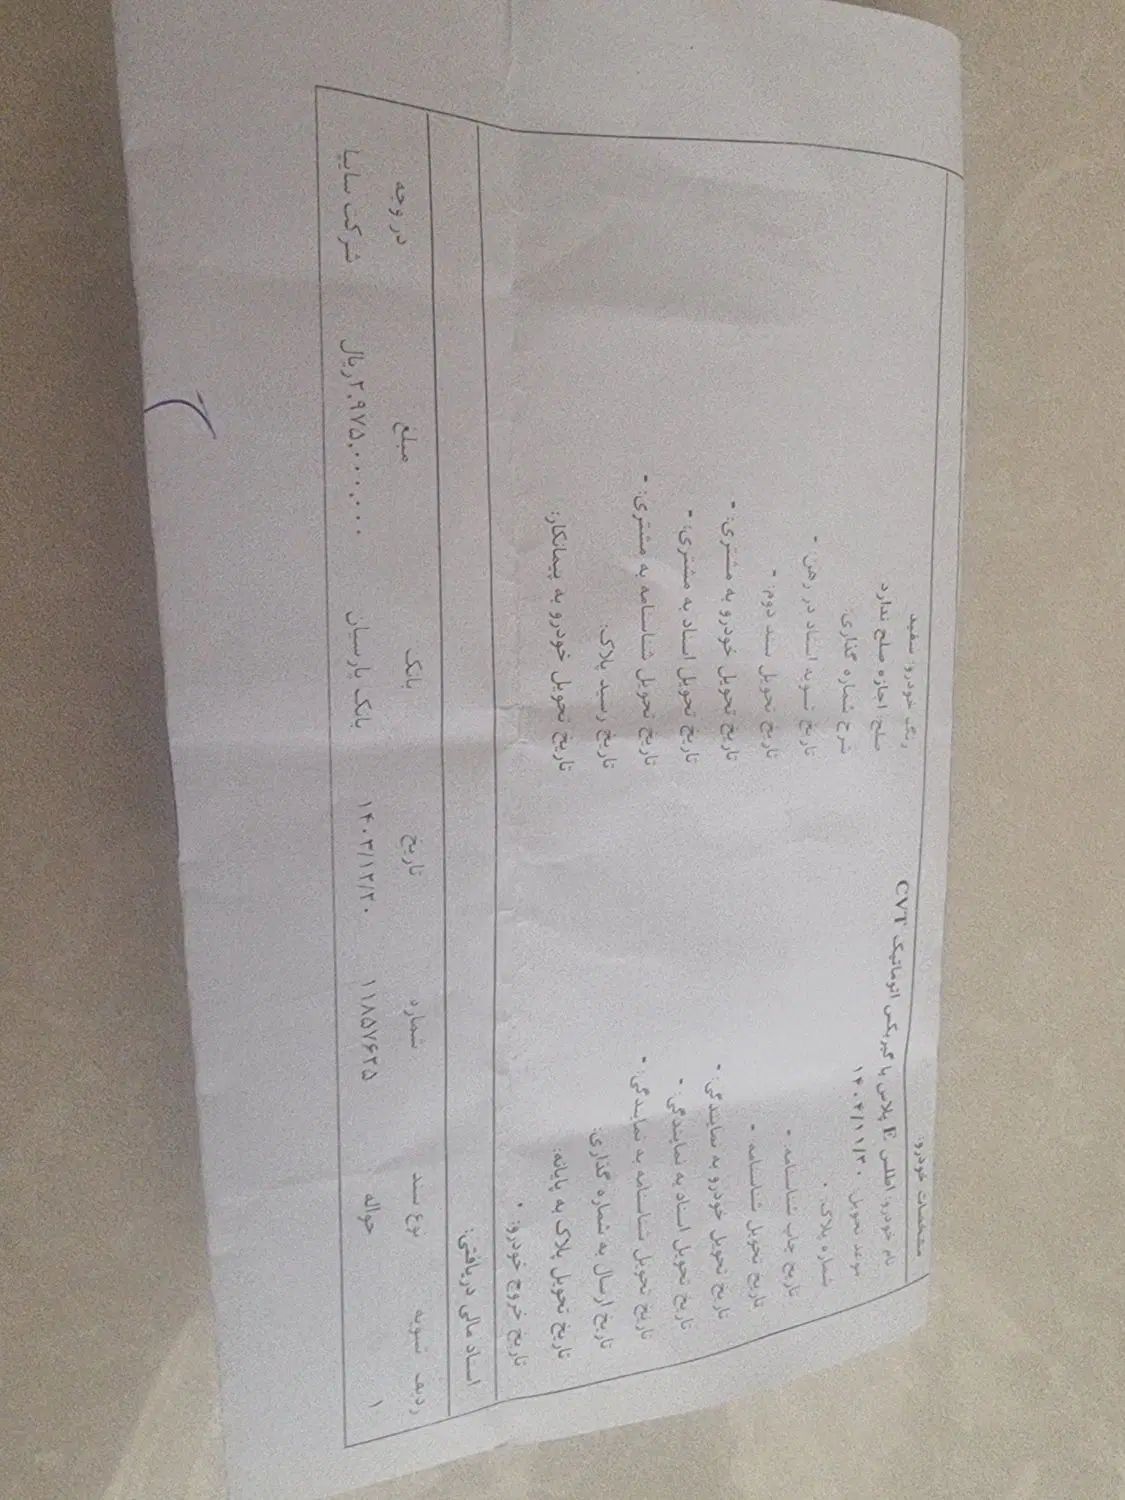 مشخصات خودرو:
نام خودرو: اطلس E پلاس با گیربکس اتوماتیک CVT
رنگ خودرو: سفید
موعد تحویل: ۱۴۰۴/۱۱/۳۰
صلح: اجازه صلح ندارد
شماره پلاک: -
شرح شماره گذاری:
تاریخ چاپ شناسنامه: -
تاریخ تسویه اسناد در رهن: -
تاریخ تحویل شناسنامه: -
تاریخ تحویل سند دوم: -
تاریخ تحویل خودرو به نمایندگی: -
تاریخ تحویل خودرو به مشتری: -
تاریخ تحویل اسناد به نمایندگی: -
تاریخ تحویل اسناد به مشتری: -
تاریخ تحویل شناسنامه به نمایندگی: -
تاریخ تحویل شناسنامه به مشتری: -
تاریخ ارسال به شماره گذاری:
تاریخ رسید پلاک:
تاریخ تحویل پلاک به پایانه:
تاریخ تحویل خودرو به پیمانکار:
تاریخ خروج خودرو: -
اسناد مالی دریافتی:
ردیف تسویه نوع سند شماره تاریخ بانک مبلغ در وجه
۱ حواله ۱۱۸۵۷۶۲۵ ۱۴۰۳/۱۲/۲۰ بانک پارسیان ۲,۹۷۵,۰۰۰,۰۰۰ریال شرکت سایپا